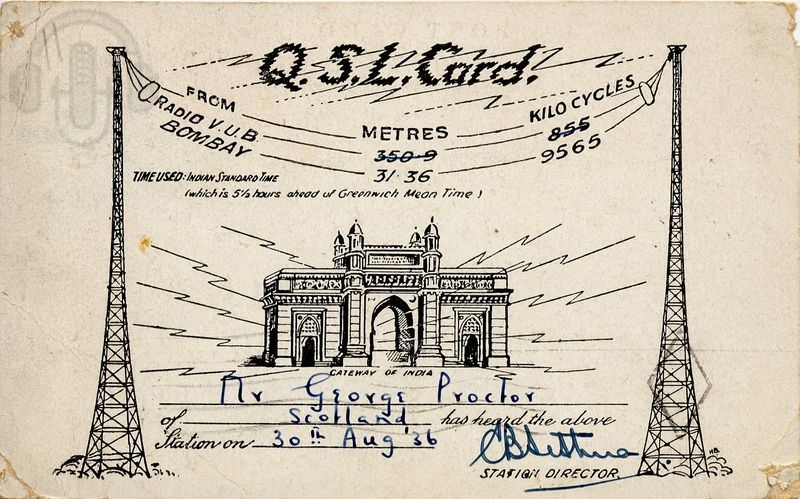 Q.S.L. Card.
FROM
RADIO V.U.B.
BOMBAY
METRES
350·9
31·36
KILO CYCLES
855
9565
TIME USED: INDIAN STANDARD TIME
(which is 5½ hours ahead of Greenwich Mean Time)
GATEWAY OF INDIA
Mr George Proctor
of Scotland has heard the above
Station on 30th Aug '36
STATION DIRECTOR
HB